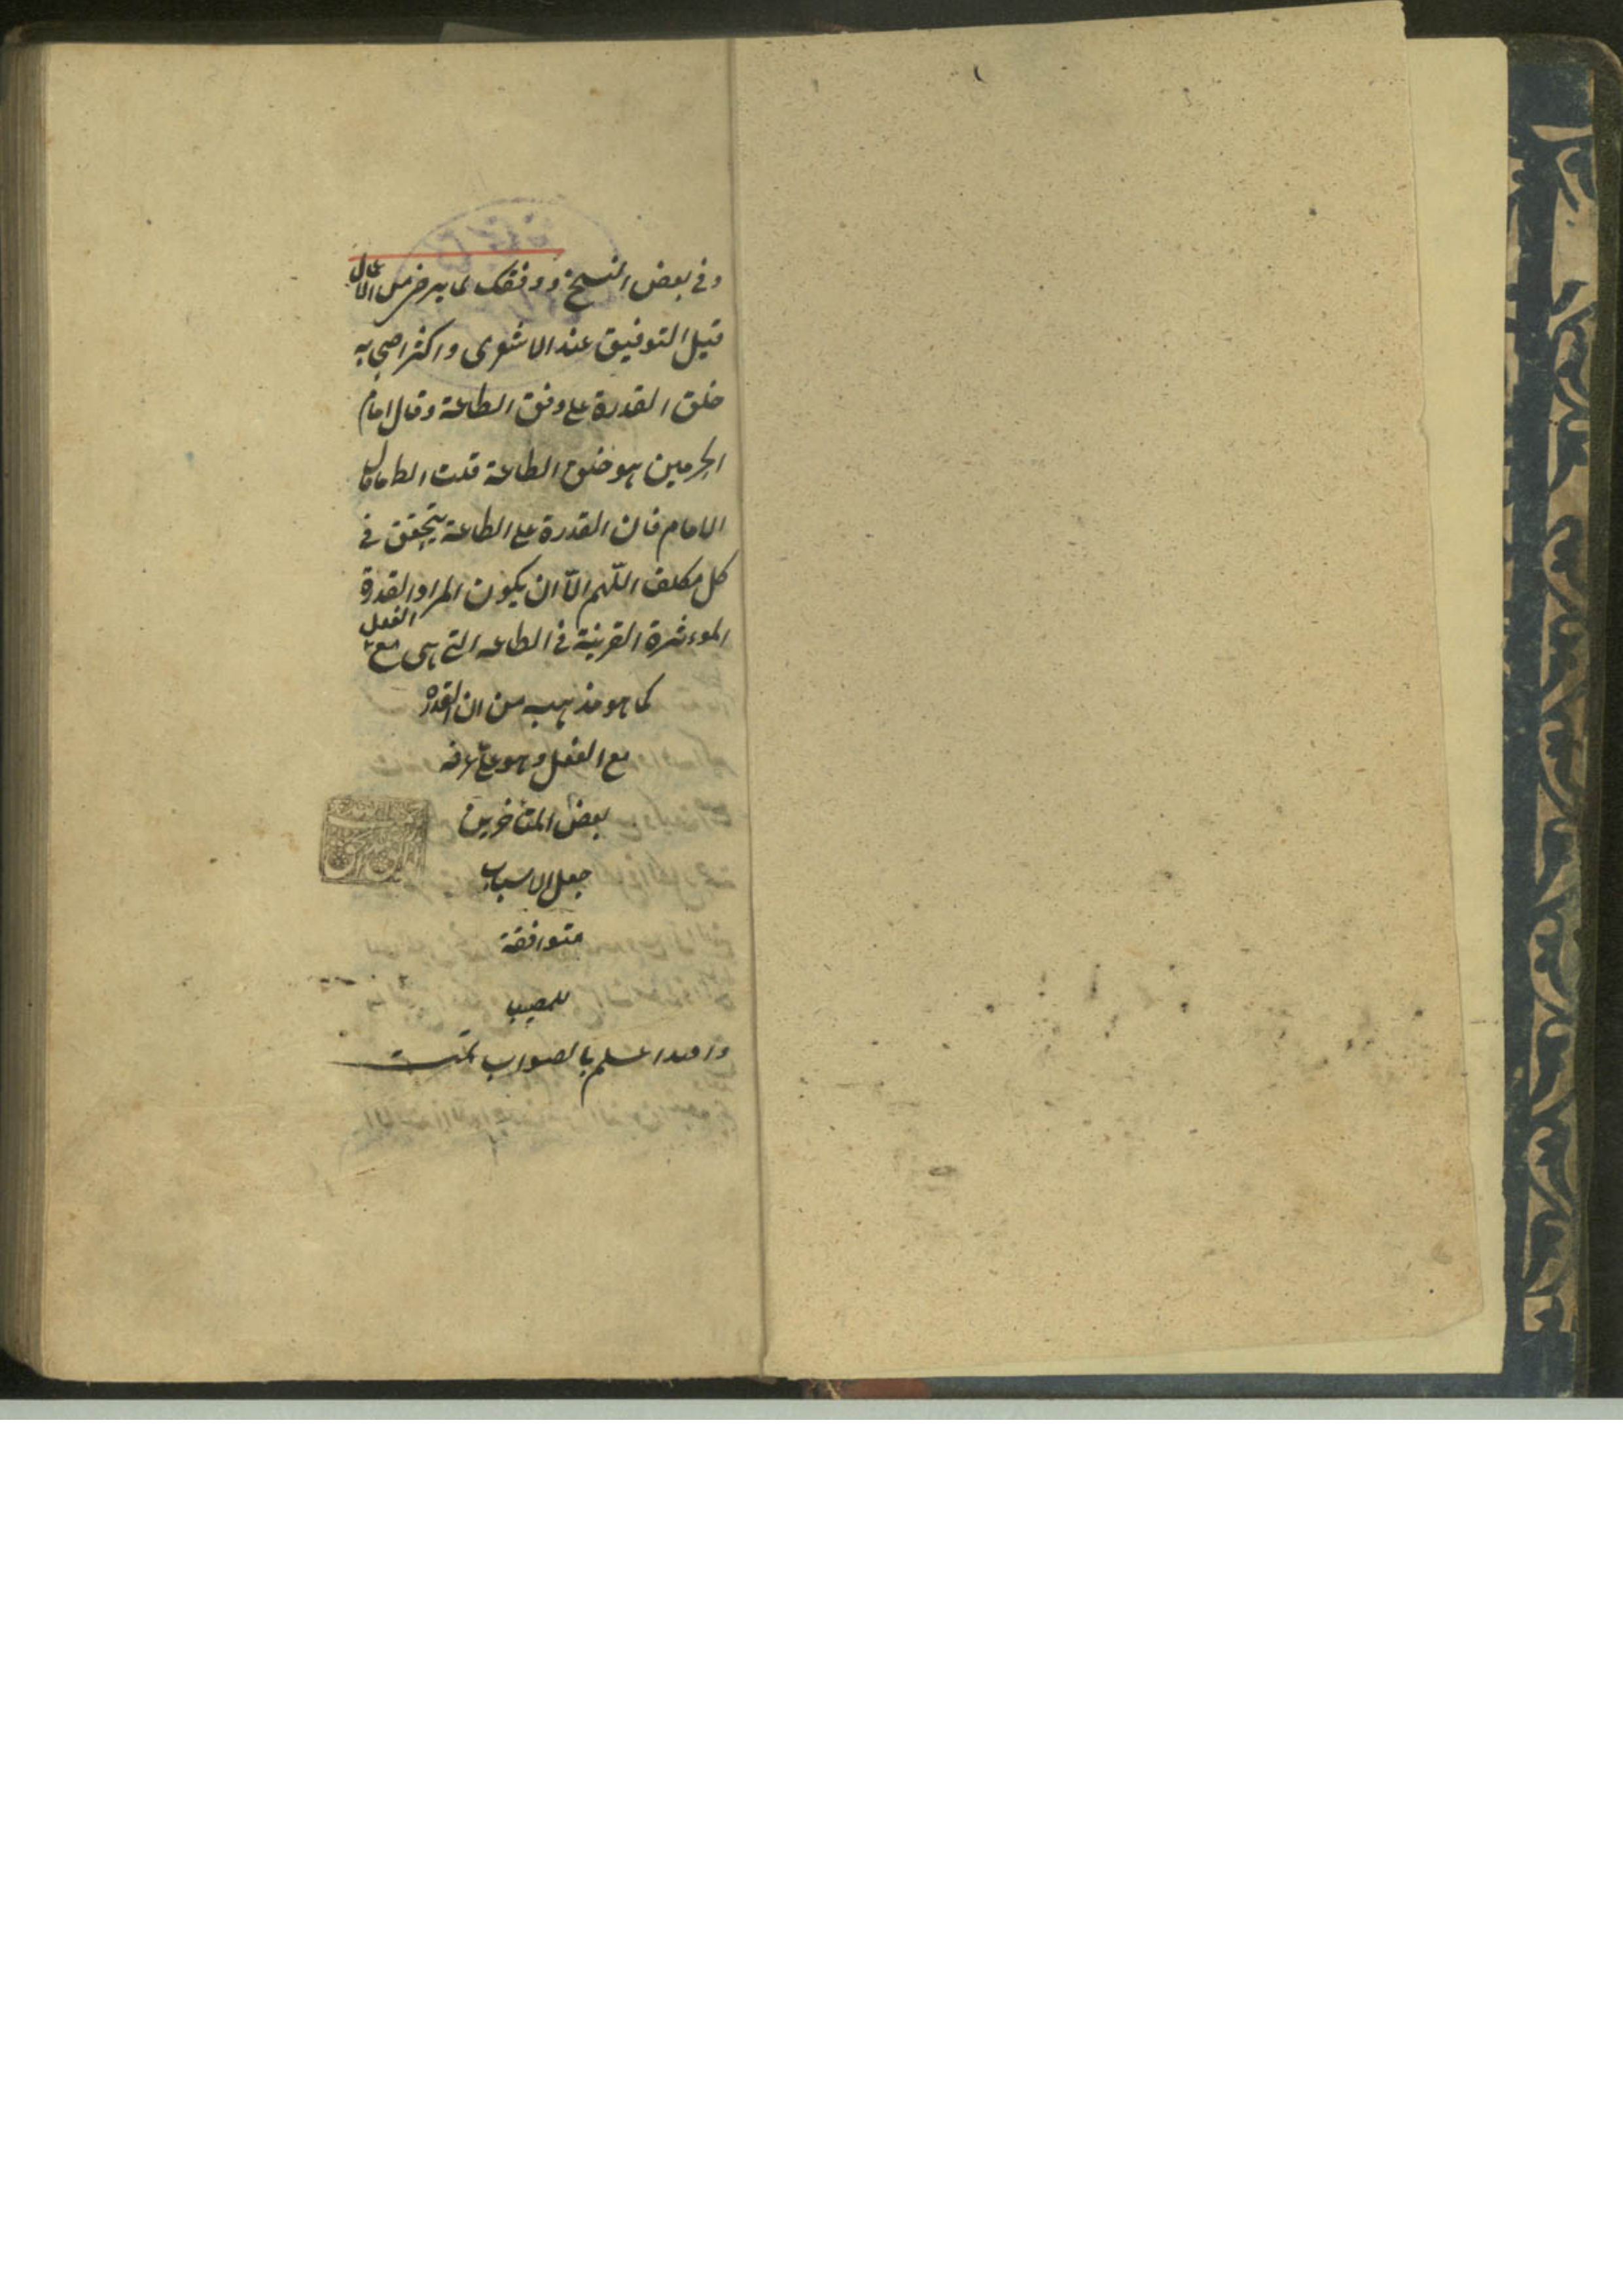 وفي بعض النسخ ووفقك لما يرضى من الاعمال
قيل التوفيق عند الاشعرى واكثر اصحابه
خلق القدرة على وفق الطاعة وقال امام
الحرمين هو خلق الطاعة قلت الظ ما قال
الامام فان القدرة على الطاعة يتحقق في
كل مكلف اللّهم الّا ان يكون المراد القدرة
الموءثرة القرينة في الطاعه التي هى مع الفعل
كما هو مذهب من ان القدرة
مع الفعل وهو على ما عرفه
بعض المتاخرين
جعل الاسباب
متوافقة
للمصيب
والله اعلم بالصواب تمت